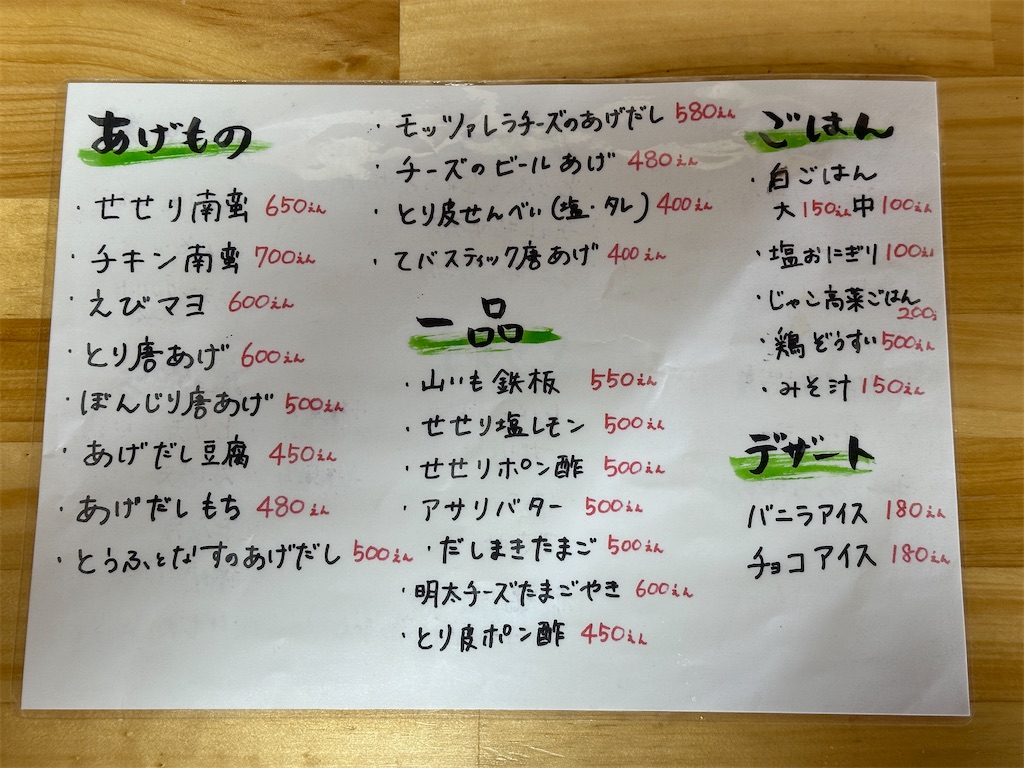 あげもの
・せせり南蛮 650えん
・チキン南蛮 700えん
・えびマヨ 600えん
・とり唐あげ 600えん
・ぼんじり唐あげ 500えん
・あげだし豆腐 450えん
・あげだしもち 480えん
・とうふとなすのあげだし 500えん
・モッツァレラチーズのあげだし 580えん
・チーズのビールあげ 480えん
・とり皮せんべい(塩・タレ) 400えん
・てバスティック唐あげ 400えん
一品
・山いも鉄板 550えん
・せせり塩レモン 500えん
・せせりポン酢 500えん
・アサリバター 500えん
・だしまきたまご 500えん
・明太チーズたまごやき 600えん
・とり皮ポン酢 450えん
ごはん
・白ごはん
大150えん中100えん
・塩おにぎり 100えん
・じゃこ高菜ごはん
200え
・鶏ぞうすい 500えん
・みそ汁 150えん
デザート
バニラアイス 180えん
チョコアイス 180えん